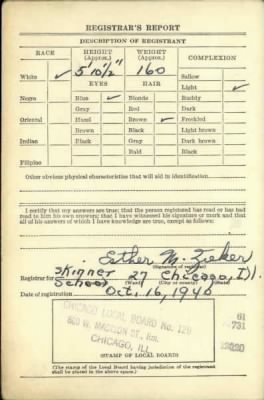 REGISTRAR'S REPORT
DESCRIPTION OF REGISTRANT
RACE HEIGHT (Approx.) WEIGHT (Approx.) COMPLEXION
White ✓ 5' 10½" 160 Sallow
EYES HAIR Light ✓
Negro Blue ✓ Blonde Ruddy
Gray Red Dark
Oriental Hazel Brown ✓ Freckled
Brown Black Light brown
Indian Black Gray Dark brown
Bald Black
Filipino
Other obvious physical characteristics that will aid in identification
I certify that my answers are true; that the person registered has read or has had
read to him his own answers; that I have witnessed his signature or mark and that
all of his answers of which I have knowledge are true, except as follows:
Esther M.
(Signature of registrar)
Registrar for Skinner 27 Chicago, Ill.
School (Ward) (City or county) (State)
Date of registration Oct. 16, 1940
CHICAGO LOCAL BOARD No. 120
W. MADISON ST., Rm.
CHICAGO, ILL
61
731
STAMP OF LOCAL BOARD
(The stamp of the Local Board having jurisdiction of the registrant
shall be placed in the above space.)